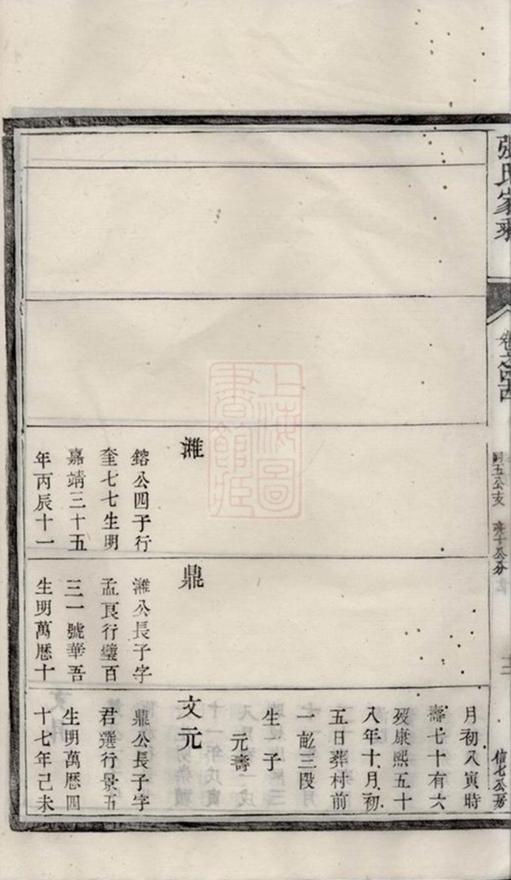 張氏家乘
卷之四
月初八寅時
壽七十有六
歿康熙五十
八年十月初
五日葬村前
一畝三段
生子
元壽
濰
鎔公四子行
奎七七生明
嘉靖三十五
年丙辰十一
鼎
濰公長子字
孟良行璧百
三一號華吾
生明萬曆十
文元
鼎公長子字
君選行景五
生明萬曆四
十七年己未
上海圖
書館藏